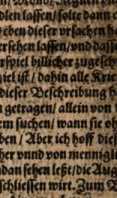 dien lassen / solte dann e
eben dieser vrsachen ha
ersehen lassen / vnd dass
rspiel billicher zugesch
iel ist / dahin alle Krie
dieser Beschreibung h
getragen / allein von
m suchen / wann sie oh
ben / Aber ich hoff diese
her vnnd von mennigli
ndan sehen lest / die Aug
schliessen wirt. Zum